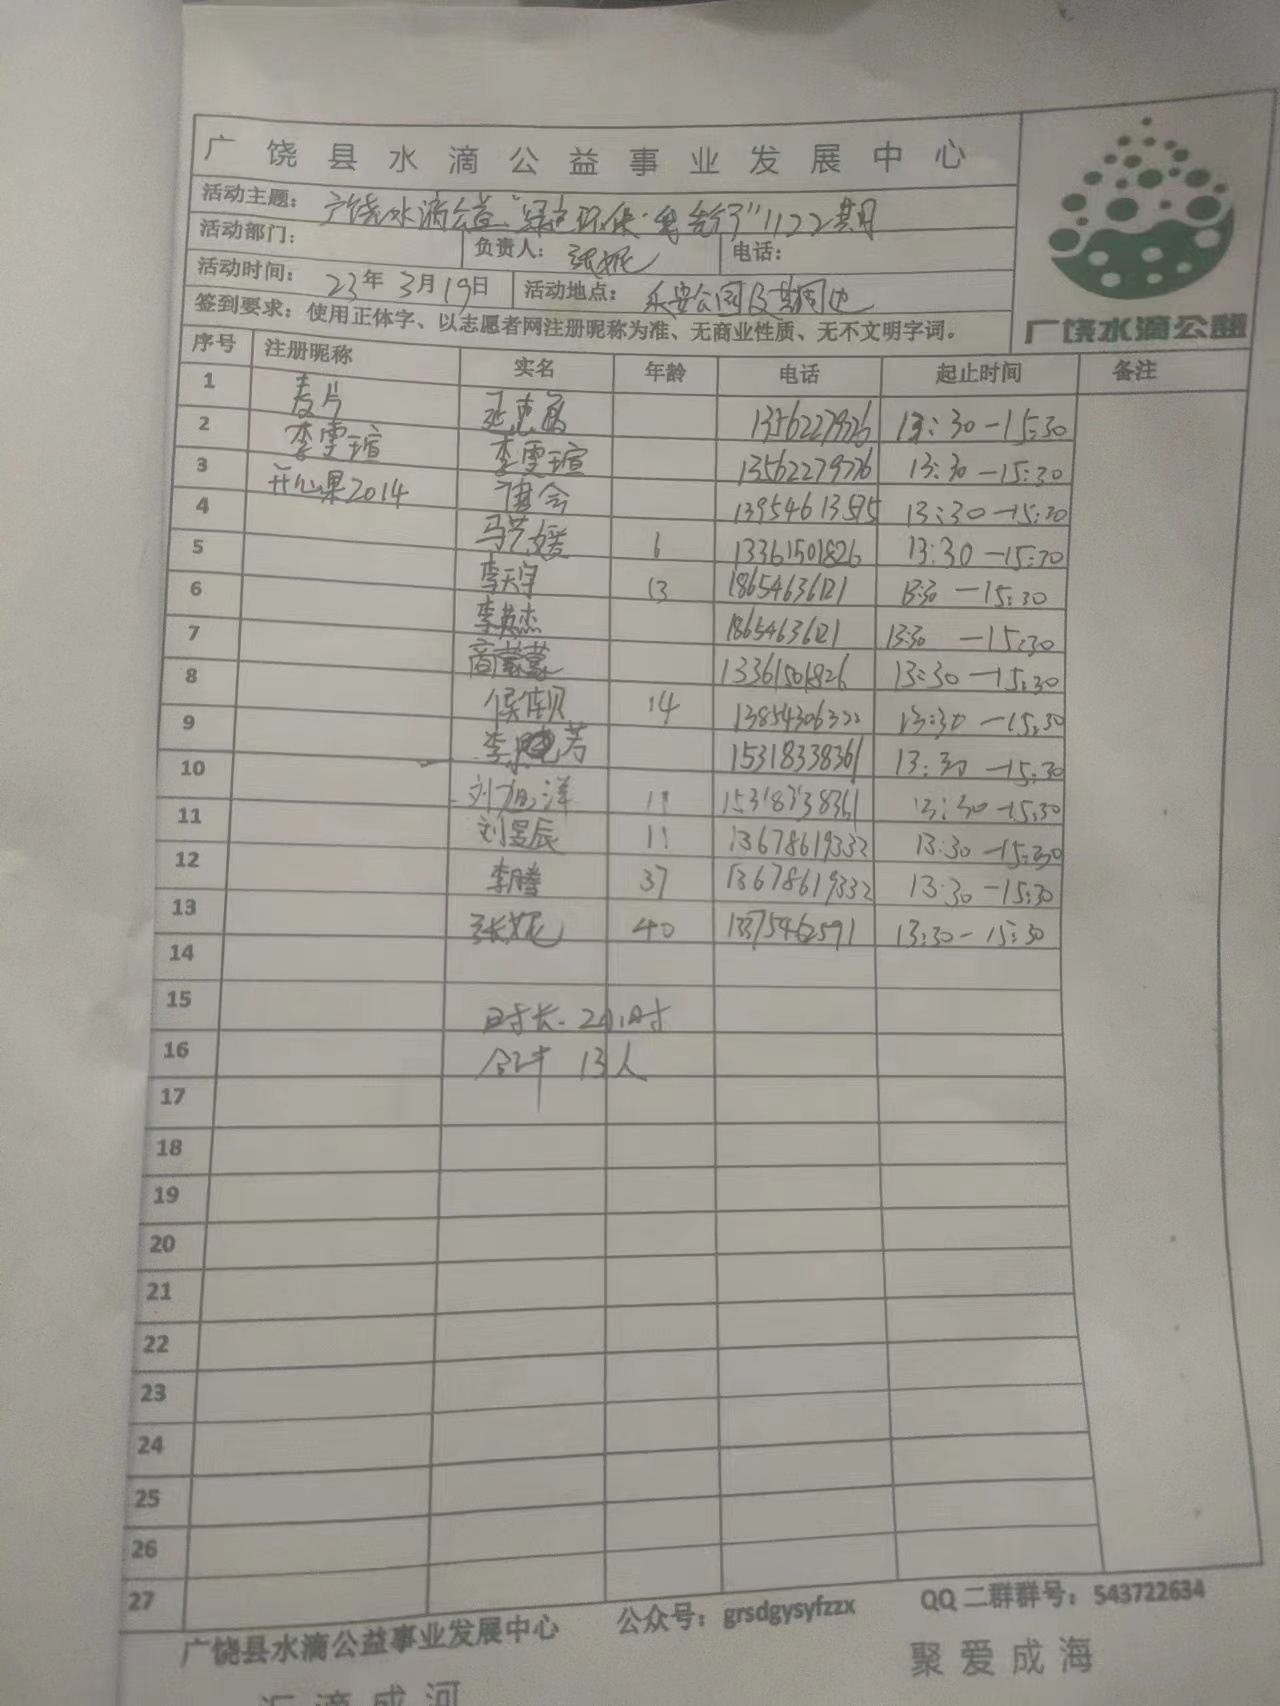 广饶县水滴公益事业发展中心
活动主题：广饶水滴公益"绿色环保·我先行"1122期
活动部门： 负责人：张妮 电话：
活动时间：23年3月19日 活动地点：永安公园及其周边
签到要求：使用正体字、以志愿者网注册昵称为准、无商业性质、无不文明字词。
广饶水滴公益
序号 注册昵称 实名 年龄 电话 起止时间 备注
1 麦片 13562279726 13:30-15:30
2 李雯瑄 李雯瑄 13562279726 13:30-15:30
3 开心果2014 13954613515 13:30-15:30
4 马艺媛 6 13361501826 13:30-15:30
5 李天宇 13 18654636121 13:30-15:30
6 李英杰 18654636121 13:30-15:30
7 商蒙蒙 13361501826 13:30-15:30
8 14 13854306322 13:30-15:30
9 李 芳 15318338361 13:30-15:30
10 刘旭洋 11 15318338361 13:30-15:30
11 刘昱辰 11 13678619332 13:30-15:30
12 李腾 37 13678619332 13:30-15:30
13 张妮 40 13375462591 13:30-15:30
14
15 时长.2小时
16 合计 13人
17
18
19
20
21
22
23
24
25
26
27
广饶县水滴公益事业发展中心 公众号：grsdgysyfzzx QQ二群群号：543722634
汇滴成河 聚爱成海